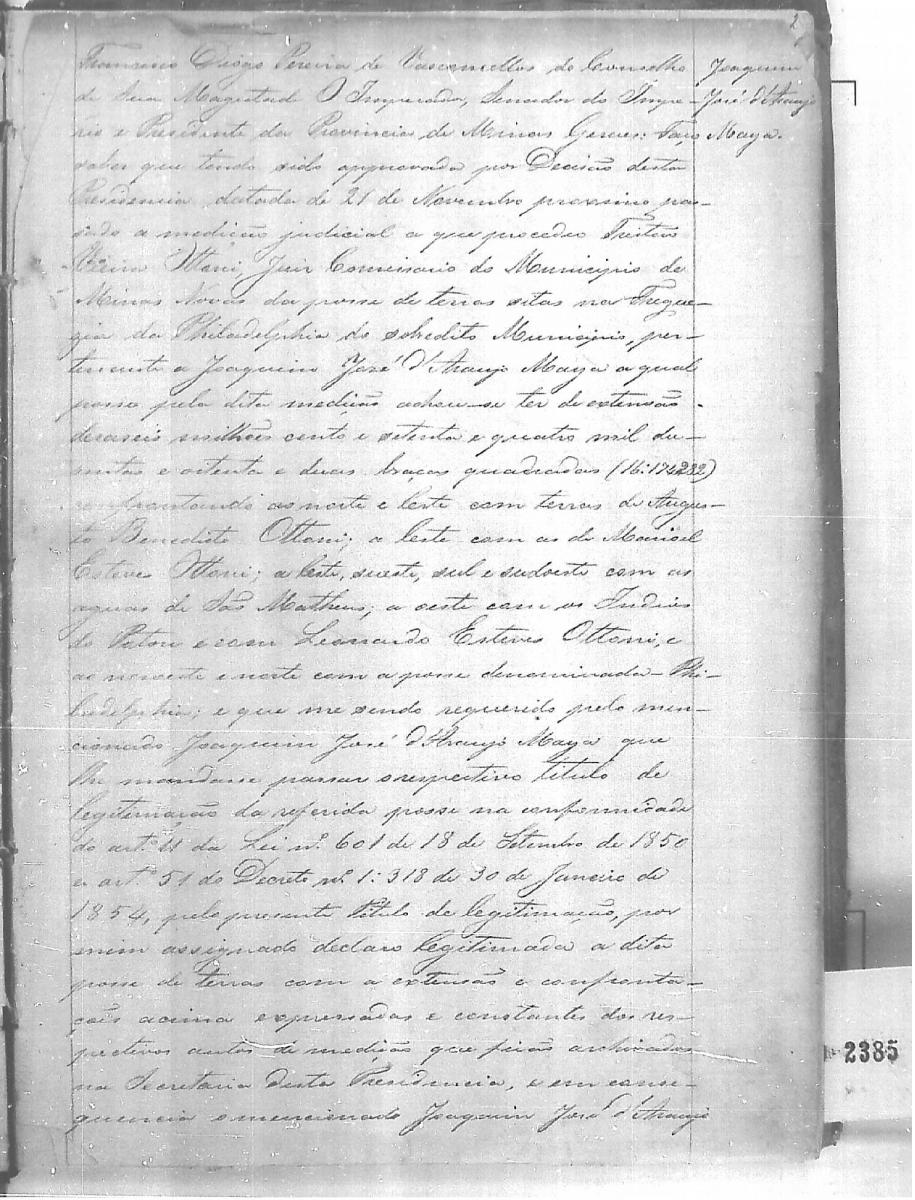 2
Joaquim
José d'Araujo
Maya.
Francisco Diogo Pereira de Vasconcellos do Conselho
de Sua Magestade O Imperador, Senador do Impe-
rio e Presidente da Provincia de Minas Geraes: Faço
saber que tendo sido approvada por Decisão desta
Presidencia datada de 21 de Novembro proximo pas-
sado a medição judicial a que procedeo Tristão
Vieira Ottoni, Juiz Comissario do Municipio de
Minas Novas da posse de terras sitas na Fregue-
zia da Philadelphia do sobredito Municipio, per-
tencente a Joaquim José d'Araujo Maya a qual
posse pela dita medição achou-se ter de extensão
dezaseis milhões cento e setenta e quatro mil du-
zentas e oitenta e duas braças quadradas (16:174282)
confrontando ao norte e leste com terras de Augus-
to Benedito Ottoni; a leste com as de Manoel
Esteves Ottoni; a leste, sueste, sul e sudoeste com as
aguas de São Matheus; a oeste com os Indios
do Poton e com Leonardo Esteves Ottoni, e
ao noroeste e norte com a posse denominada - Phi-
ladelphia; e que me sendo requerido pelo men-
cionado Joaquim José d'Araujo Maya que
lhe mandasse passar o respectivo titulo de
legitimação da referida posse na conformidade
do artº 11 da Lei nº 601 de 18 de Setembro de 1850
e artº 51 do Decreto nº 1:318 de 30 de Janeiro de
1854, pelo presente Titulo de legitimação, por
mim assignado declaro legitimada a dita
posse de terras com a extensão e confronta-
ções acima expressadas e constantes dos res-
pectivos autos de medição que ficão archivados
na Secretaria desta Presidencia, e em conse-
quencia o mencionado Joaquim José d'Araujo
2385